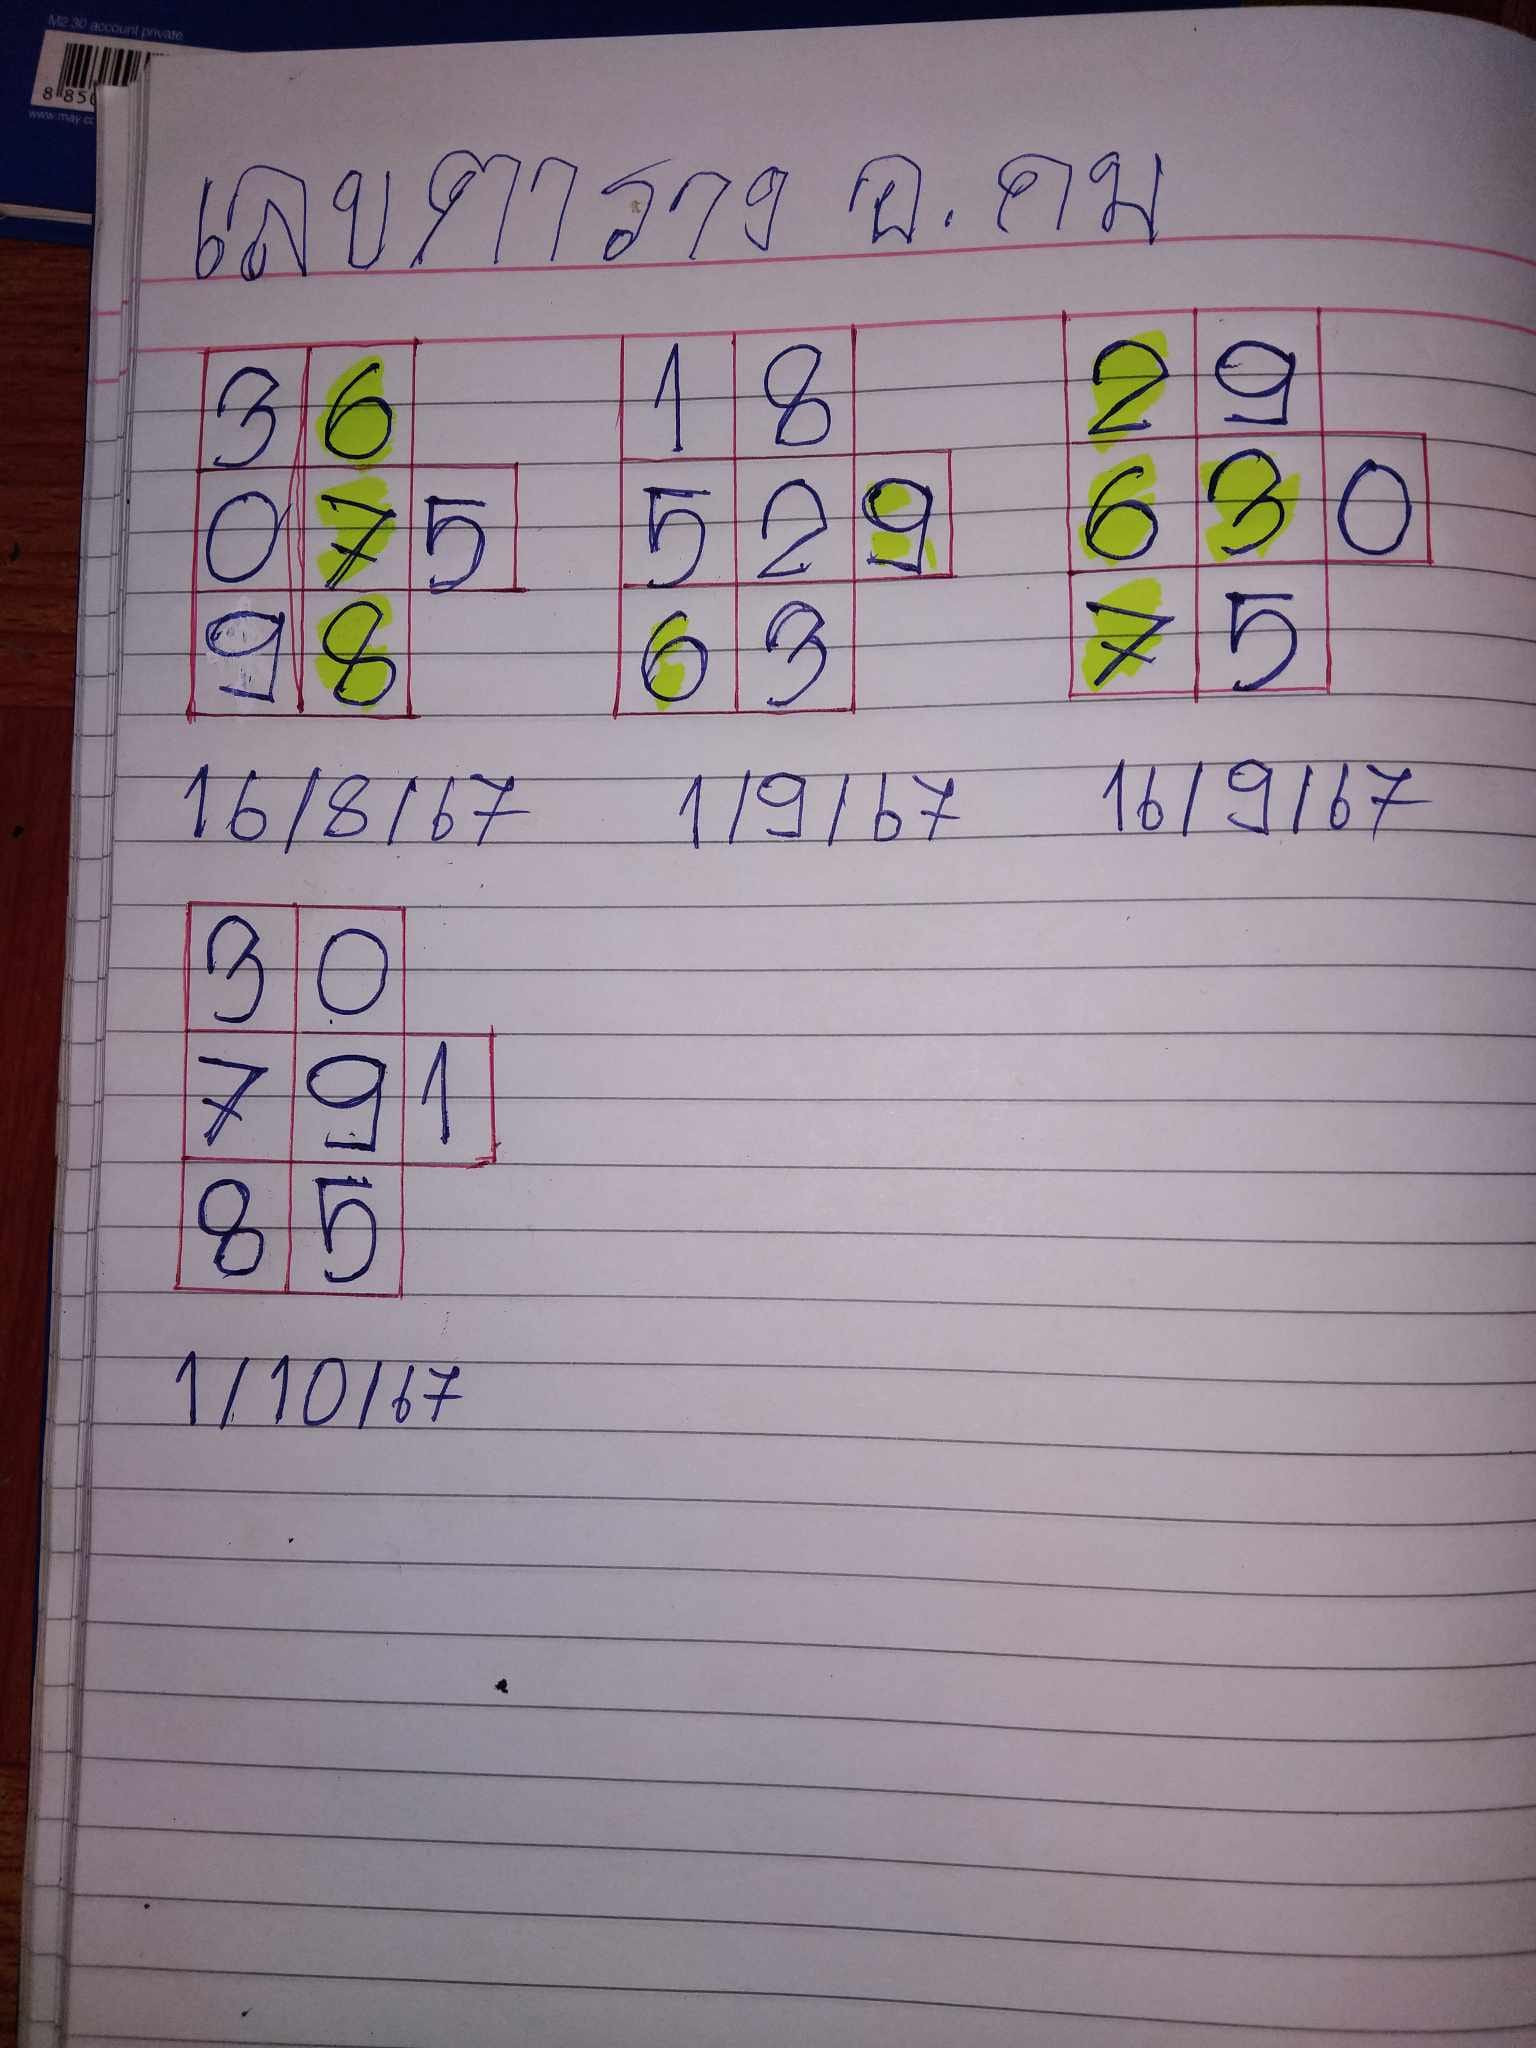 M2 30 account private
8 850
www.may.co
เลขตาราง อ. คม
3 6
0 7 5
9 8
1 8
5 2 9
6 3
2 9
6 3 0
7 5
16/8/67 1/9/67 16/9/67
3 0
7 9 1
8 5
1/10/67